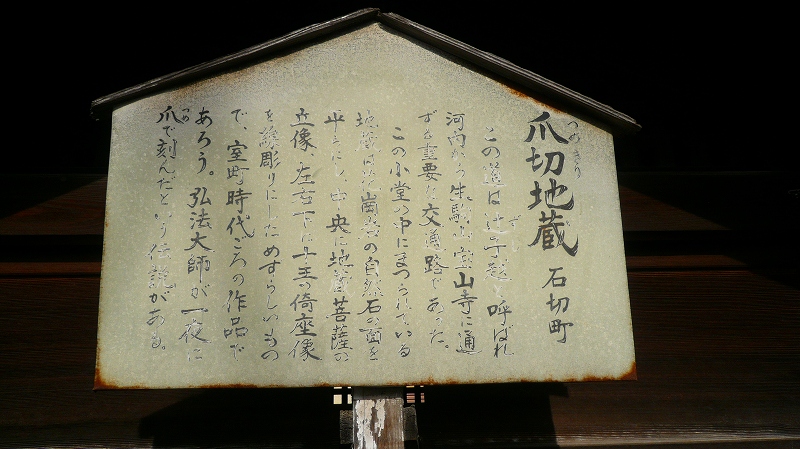 つめきり
爪切地蔵 石切町
ずし
この道は辻子越と呼ばれ
河内から生駒山宝山寺に通
ずる重要な交通路であった。
この小堂の中にまつられている
地蔵は花崗岩の自然石の面を
平らにし、中央に地蔵菩薩の
立像、左右下に十王の倚座像
を線彫りにしためずらしいもの
で、室町時代ごろの作品で
あろう。弘法大師が一夜に
つめ
爪で刻んだという伝説がある。